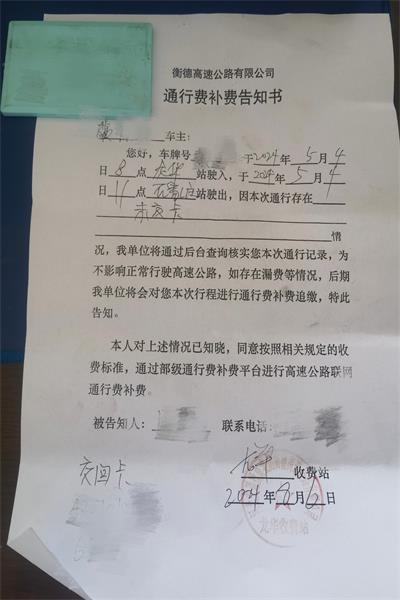 衡德高速公路有限公司
通行费补费告知书
车主：
您好，车牌号 于2024年5月4
日8点龙华站驶入，于2024年5月4
日11点 站驶出，因本次通行存在
未交卡
情
况，我单位将通过后台查询核实您本次通行记录，为
不影响正常行驶高速公路，如存在漏费等情况，后期
我单位将会对您本次行程进行通行费补费追缴，特此
告知。
本人对上述情况已知晓，同意按照相关规定的收
费标准，通过部级通行费补费平台进行高速公路联网
通行费补费。
被告知人： 联系电话：
交回卡
龙华 收费站
2024年 月6日
龙华收费站